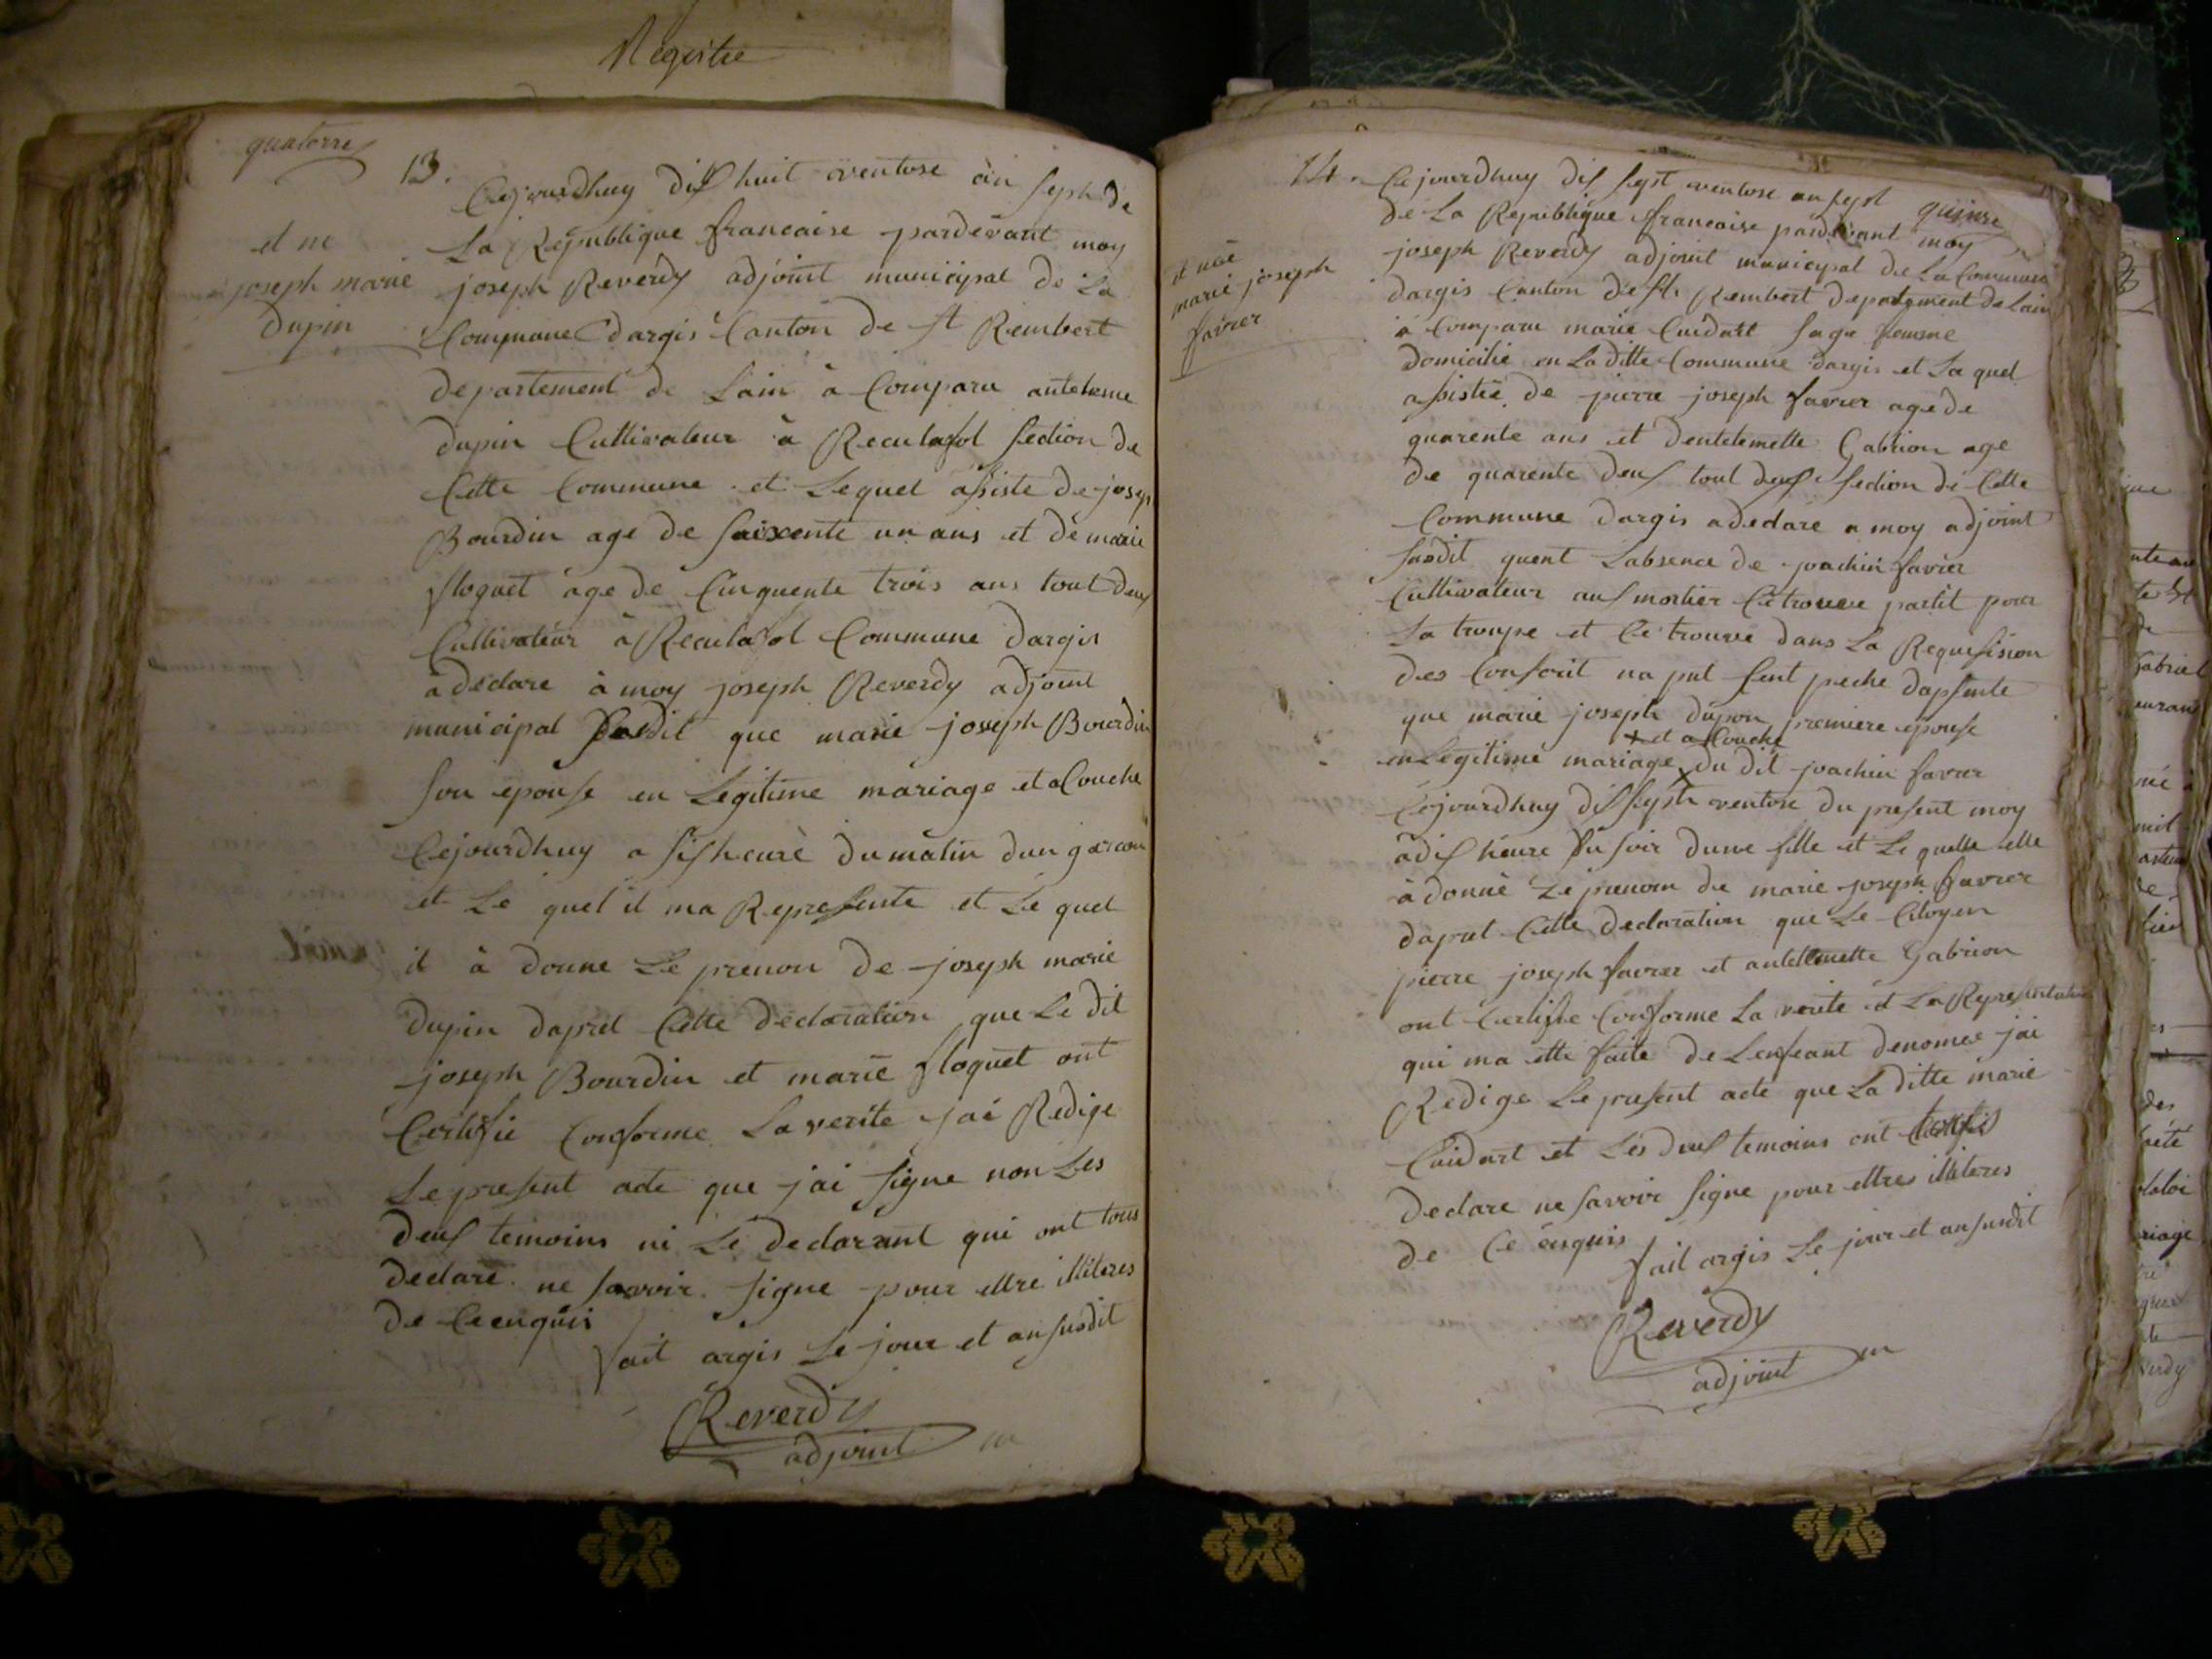 Registre
quatorze
13.
et ne
joseph marie
dupin
Cejourdhuy disf huit ventose an sept de
La Republique francaise pardevant moy
joseph Reverdy adjoint municipal de La
Commune dargis Canton de st Rembert
departement de Lain à Comparu antelme
dupin Cultivateur à Reculafol section de
Cette Commune et Lequel assiste de josep
Bourdin age de soixente un ans et de marie
floquet age de Cinquente trois ans tout deux
Cultivateur à Reculafol Commune dargis
à déclare à moy joseph Reverdy adjoint
municipal susdit que marie joseph Bourdin
son epouse en Legitime mariage et a Couche
Cejourdhuy a sis heure du matin dun garcon
et Le quel il ma Represente et Le quel
il à donne Le prenon de joseph marie
dupin dapret Cette declaration que Le dit
joseph Bourdin et marie floquet ont
Certifie Conforme La verite jai Redige
Le present acte que jai signe non Les
deus temoins ni Le declarant qui ont tous
declare ne savoir signe pour ettre illiteres
de Ce enquis
fait argis Le jour et an susdit
Reverdy
adjoint
quinze
14.
et née
marie joseph
favrier
Cejourdhuy dis sept ventose an sept
de La Republique francaise pardevant moy
joseph Reverdy adjoint municipal de La Commune
dargis Canton de st Rembert departement de Lain
à Comparu marie Cuidart sage femme
domicilié en La ditte Commune dargis et La quel
assistée de pierre joseph favrier age de
quarente ans et dentelmette Gabrion age
de quarente deus tout deus section de Cette
Commune dargis a declare a moy adjoint
susdit quent Labsence de joachin favrier
Cultivateur aus mortier Ce trouve partit pour
La troupe et Ce trouve dans La Requisision
des Conscrit na put sent peche dapsente
que marie joseph dupon premiere epouse
+ et a Couche
en Legitime mariage x du dit joachin favrier
Cejourdhuy dis sept ventose du present moy
à dis heure du soir dune fille et Le quelle elle
à donné Le prenom de marie joseph favrier
dapret Cette declaration que Le Citoyen
pierre joseph favrier et antelmette Gabrion
ont Certifie Conforme La verite et La Representation
qui ma ette faite de Lenfeant denomee jai
Redige Le present acte que La ditte marie
Cuidart et Les deus temoins ont
declare ne savoir signe pour ettres illiteres
de Ce enquis
fait argis Le jour et an susdit
Reverdy
adjoint